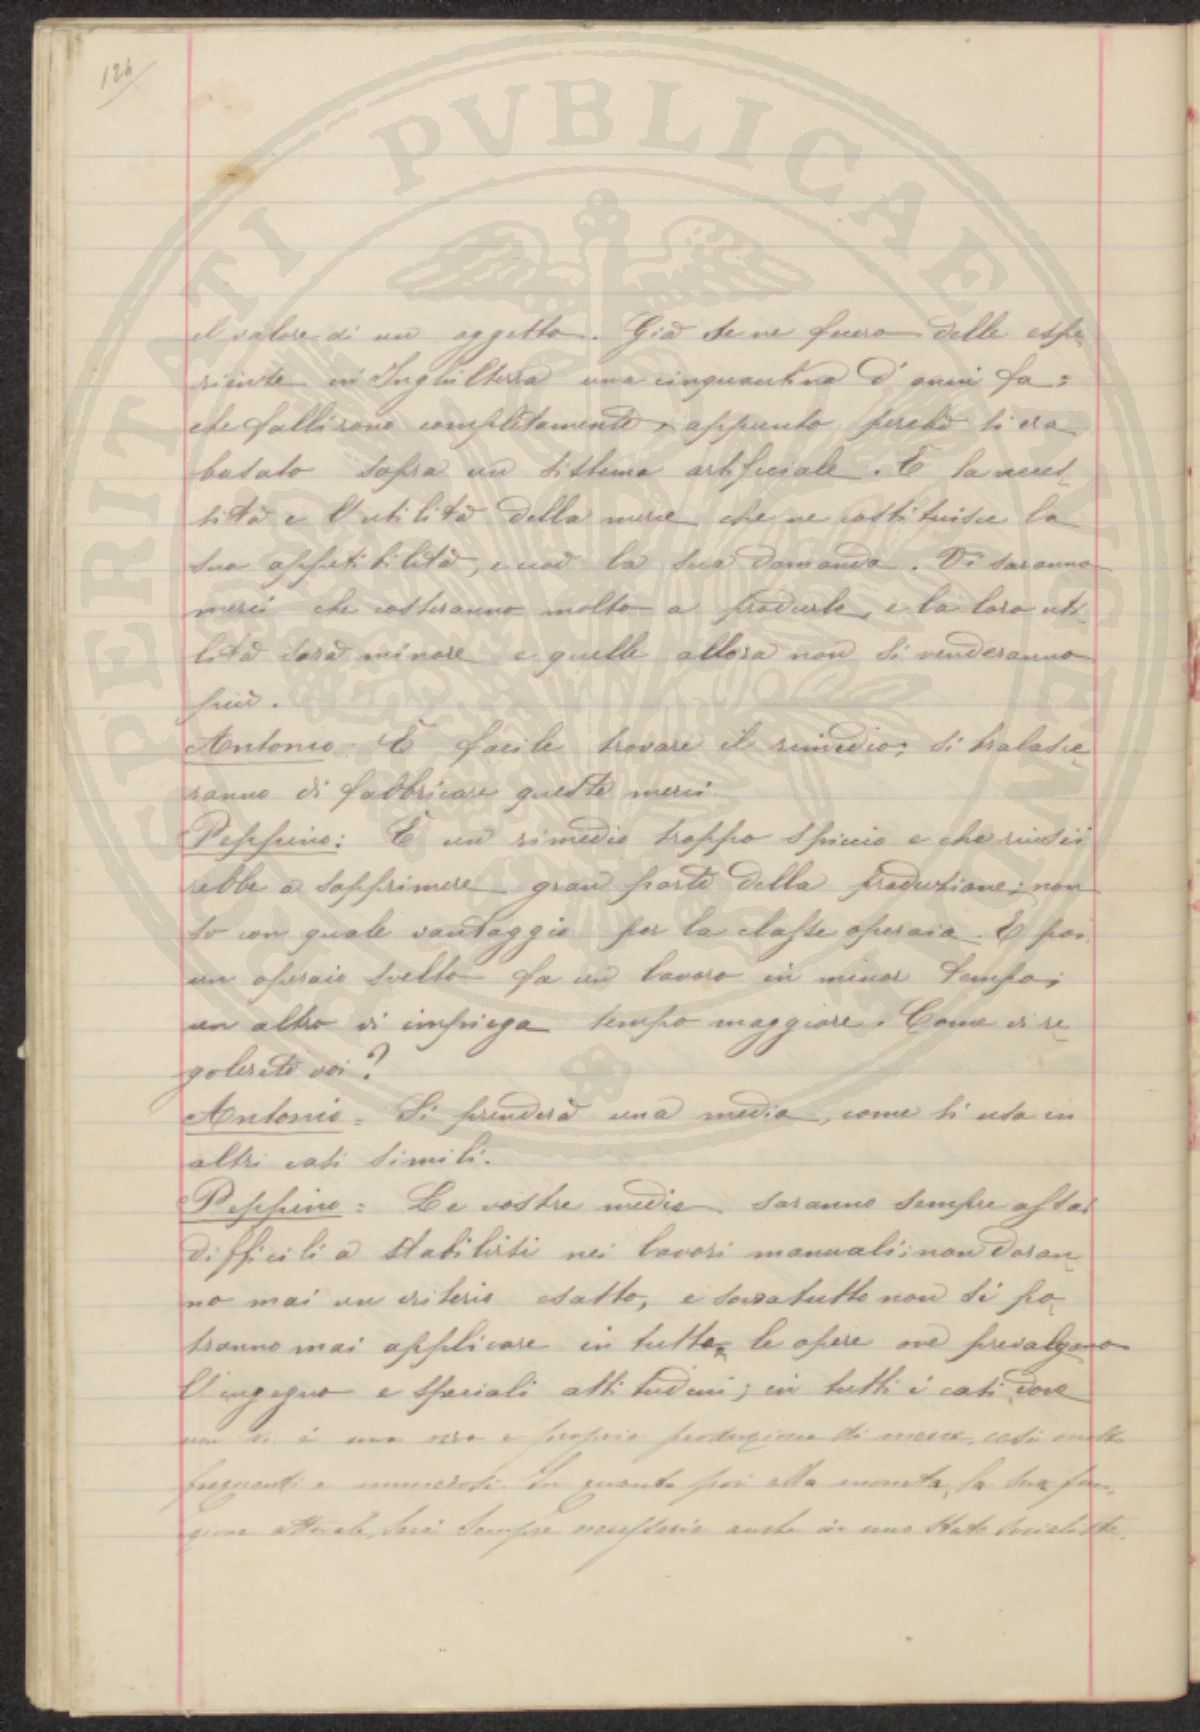 126
el valore di un oggetto. Già se ne fuero delle espe
rienze in Inghilterra una cinquantina d'anni fa:
che fallirono completamente, appunto perchè si era
basato sopra un sistema artificiale. È la neces-
sità e l'utilità della merce che ne costituisce la
sua appetibilità, e cioè la sua domanda. Vi saranno
merci che costeranno molto a produrle, e la loro uti-
lità sarà minore e quelle allora non si venderanno
più.
Antonio = È facile trovare il rimedio; si tralasce
ranno di fabbricare queste merci.
Peppino: È un rimedio troppo spiccio e che riusci
rebbe a sopprimere gran parte della produzione; non
so con quale vantaggio per la classe operaia. E poi
un operaio svelto fa un lavoro in minor tempo;
un altro vi impiega tempo maggiore. Come vi re
golerete voi?
Antonio = Si prenderà una media, come si usa in
altri casi simili.
Peppino = Le vostre medie saranno sempre assai
difficili a stabilirsi nei lavori manuali; non daran
no mai un criterio esatto, e sovratutto non si po
tranno mai applicare in tutte le opere ove prevalgono
l'ingegno e speciali attitudini; in tutti i casi dove
non vi è una vera e propria produzione di merce, casi molto
frequenti e numerosi. In quanto poi alla moneta, la sua fun-
zione attuale, sarà sempre necessaria anche in uno Stato socialista.
PERITATI PVBLICAE